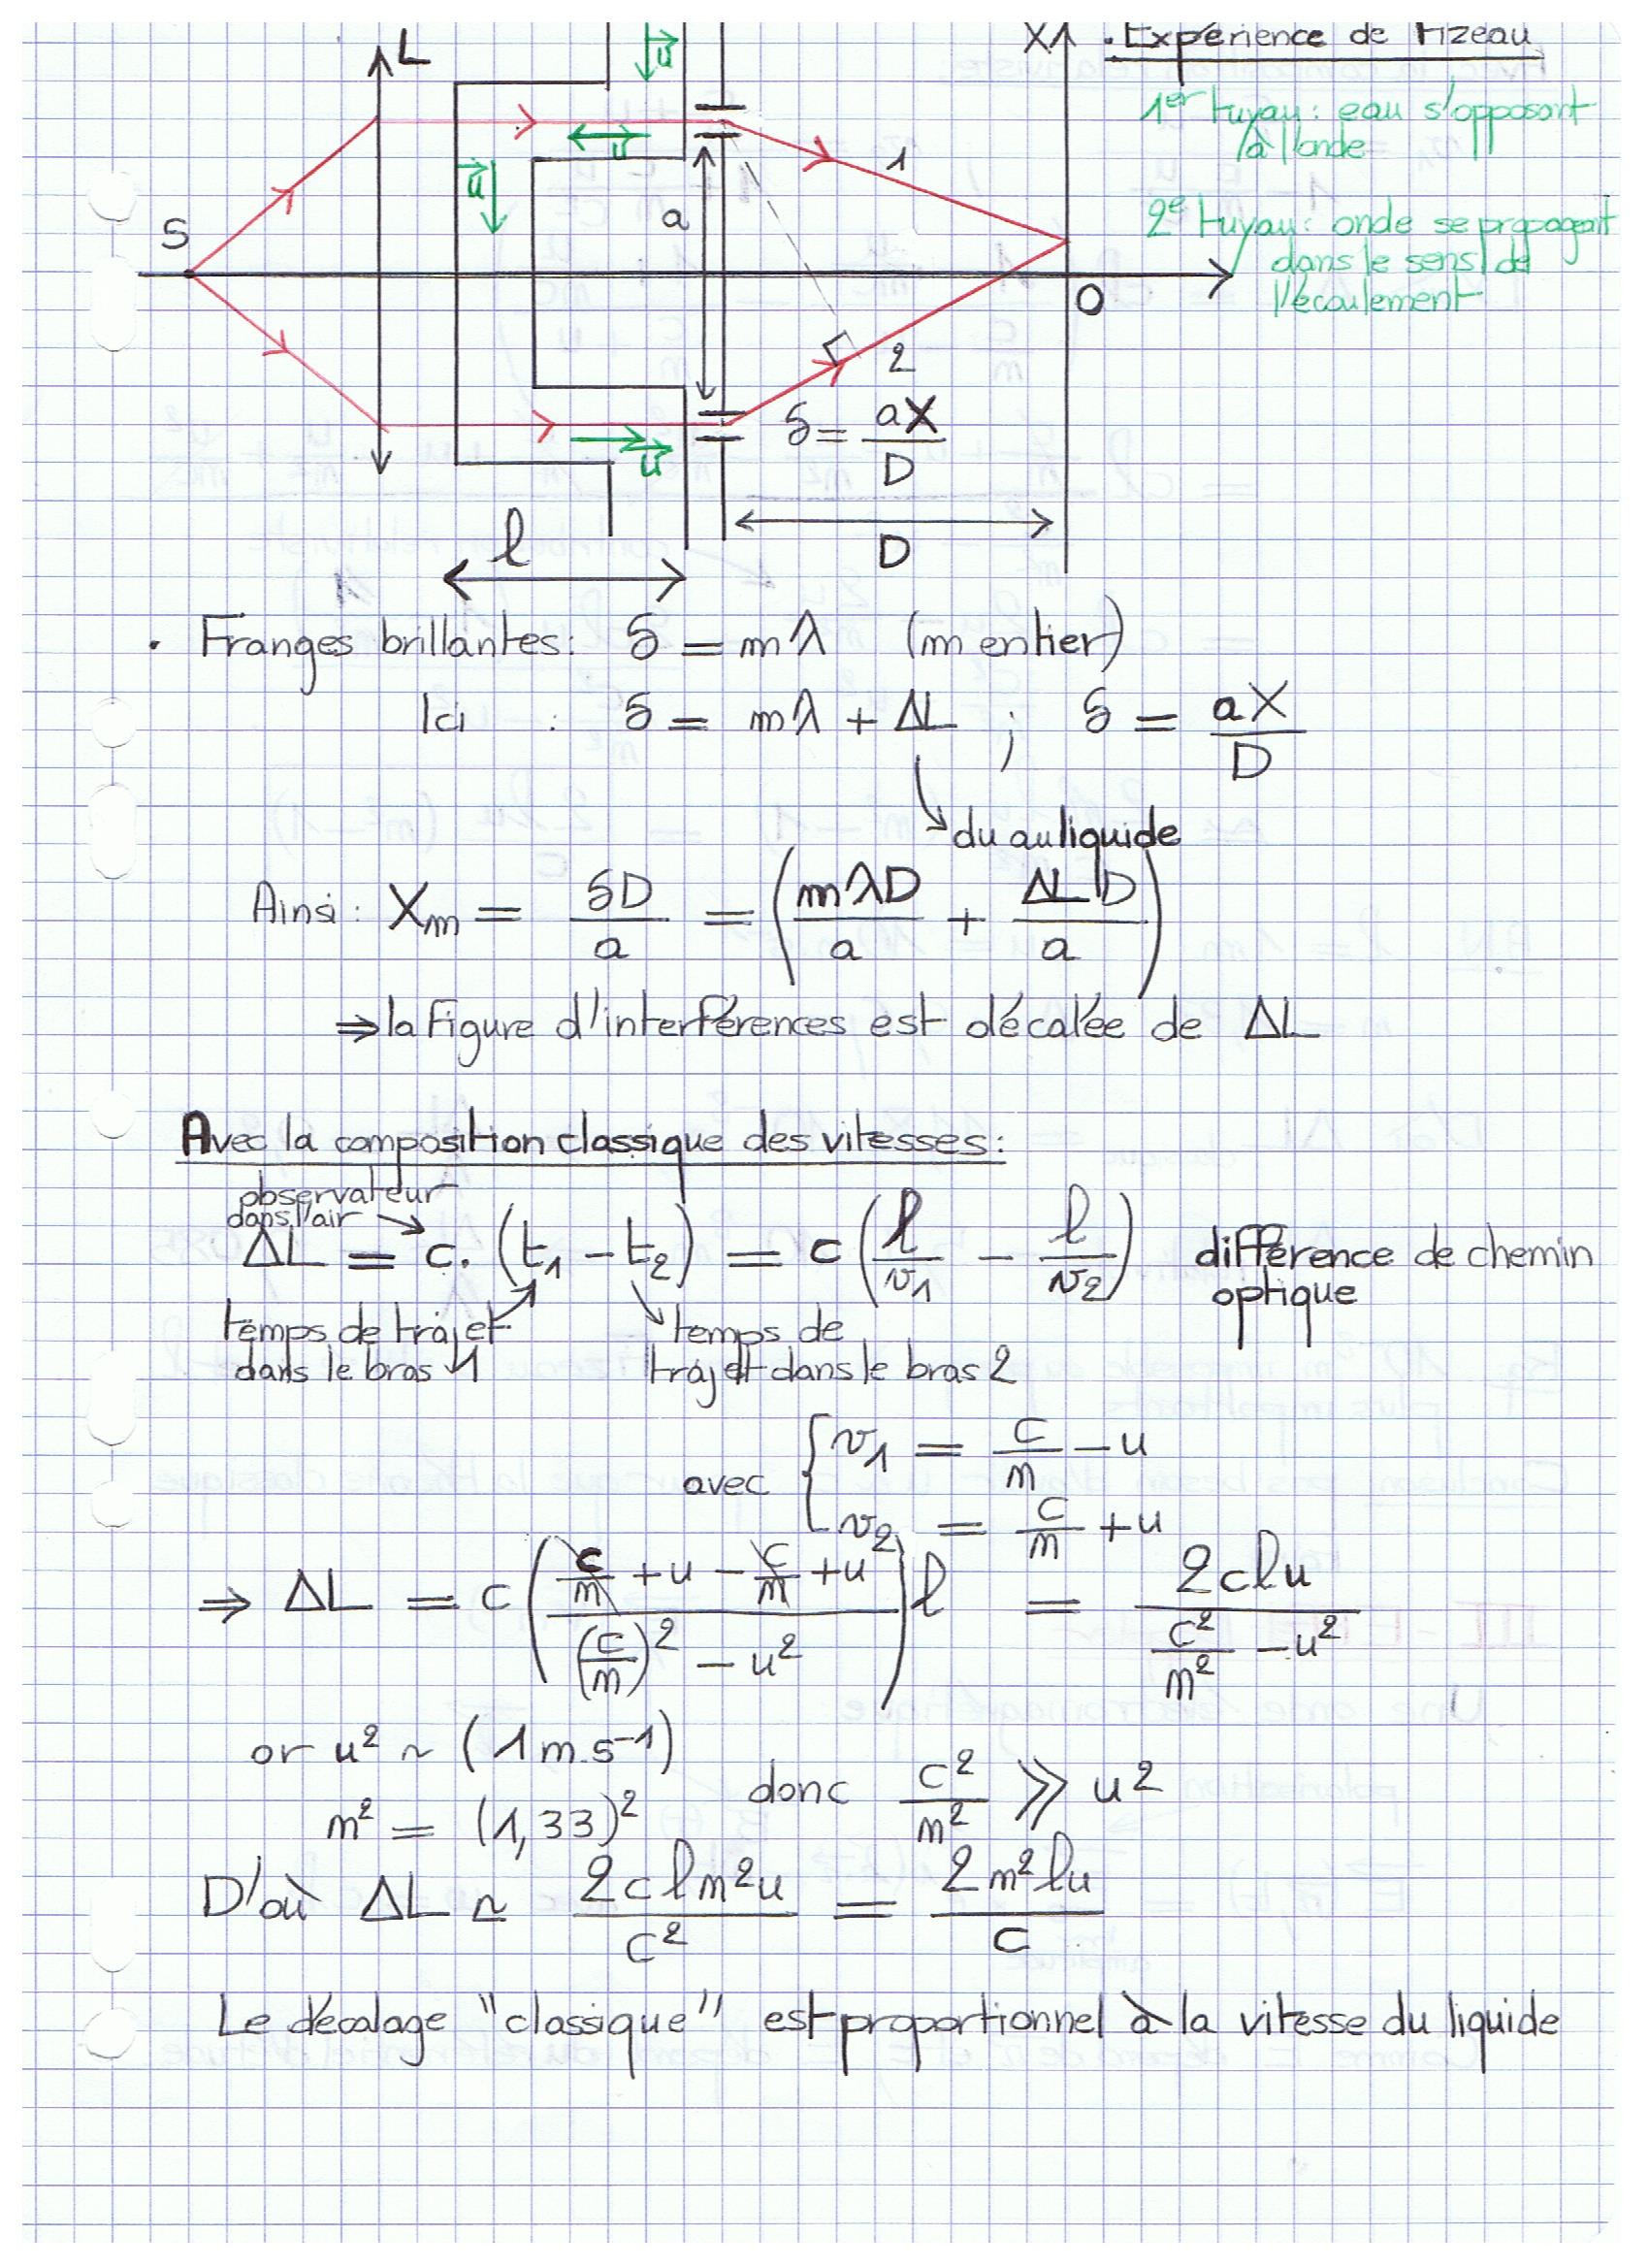 L
u
X
. Expérience de Fizeau
1er tuyau : eau s'opposant
à l'onde
u
1
u
a
S
2e tuyau : onde se propageait
dans le sens de
l'écoulement
O
2
δ = aX/D
u
l
D
. Franges brillantes : δ = mλ (m entier)
Ici : δ = mλ + ΔL ; δ = aX/D
du au liquide
Ainsi : Xm = δD/a = (mλD/a + ΔL D/a)
⇒ la Figure d'interférences est décalée de ΔL
Avec la composition classique des vitesses :
observateur
dans l'air
ΔL = c. (t1 - t2) = c (l/v1 - l/v2) différence de chemin
optique
temps de trajet
dans le bras 1
temps de
trajet dans le bras 2
avec { v1 = c/n - u
v2 = c/n + u
⇒ ΔL = c ((c/n + u - c/n + u)/((c/n)² - u²)) l = 2clu/(c²/n² - u²)
or u² ~ (1 m.s-1)
n² = (1,33)²
donc c²/n² ≫ u²
D'où ΔL ≃ 2cln²u/c² = 2n²lu/c
Le décalage "classique" est proportionnel à la vitesse du liquide